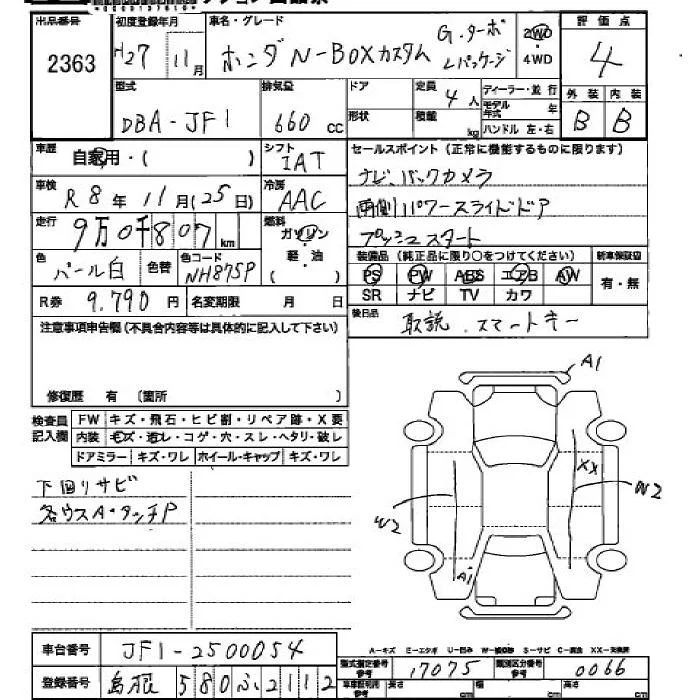 出品番号 初度登録年月 車名・グレード 評価点
2363 H27 11月 ホンダ N-BOXカスタム G.ターボ Lパッケージ 2WD・4WD 4
型式 排気量 ドア 定員 ディーラー・並行 外装 内装
DBA-JF1 660cc 形状 4人 積載 kg モデル年式 年 ハンドル 左・右 B B
車歴 自家用・( ) シフト IAT セールスポイント(正常に機能するものに限ります)
車検 R8年11月(25日) 冷房 AAC ナビ、バックカメラ
走行 9万0千807km 燃料 ガソリン・軽油( ) 両側パワースライドドア
プッシュスタート
色 パール白 色替 色コード NH875P 装備品(純正品に限り○をつけてください) 新車保証書
PS PW ABS エアB AW 有・無
SR ナビ TV カワ
R券 9,790円 名変期限 月 日
後日品 取説 スマートキー
注意事項申告欄(不具合内容等は具体的に記入して下さい)
修復歴 有 〔箇所 〕
検査員記入欄 FW キズ・飛石・ヒビ割・リペア跡・X要
内装 キズ・汚レ・コゲ・穴・スレ・ヘタリ・破レ
ドアミラー キズ・ワレ ホイール・キャップ キズ・ワレ
下回リサビ
各ウスA・タッチP
A1
XX
W2
W2
A1
A-キズ E-エクボ U-凹み W-補修跡 S-サビ C-腐食 XX-交換済
車台番号 JF1-2500054
型式指定番号 参考 17075 類別区分番号 参考 0066
登録番号 島根 580ふ2112
車車証別用 参考 長さ cm 幅 cm 高さ cm